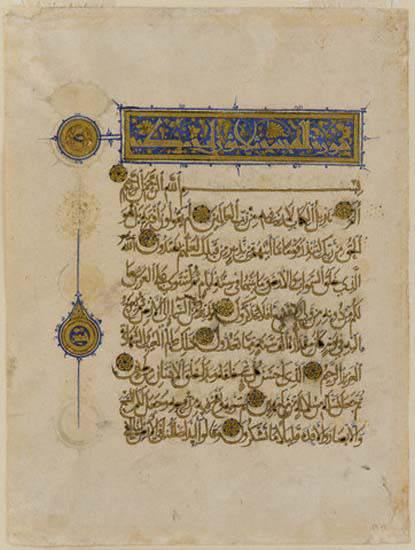 سورة السجدة
بسم الله الرحمن الرحيم
الم تنزيل الكتاب لا ريب فيه من رب العالمين أم يقولون افتراه بل هو
الحق من ربك لتنذر قوما ما أتاهم من نذير من قبلك لعلهم يهتدون الله
الذي خلق السموات والأرض وما بينهما في ستة أيام ثم استوى على العرش ما
لكم من دونه من ولي ولا شفيع أفلا تتذكرون يدبر الأمر من السماء إلى الأرض ثم يعرج
إليه في يوم كان مقداره ألف سنة مما تعدون ذلك عالم الغيب والشهادة
العزيز الرحيم الذي أحسن كل شيء خلقه وبدأ خلق الإنسان من طين
ثم جعل نسله من سلالة من ماء مهين ثم سواه ونفخ فيه من روحه وجعل لكم السمع
والأبصار والأفئدة قليلا ما تشكرون وقالوا أئذا ضللنا في الأرض